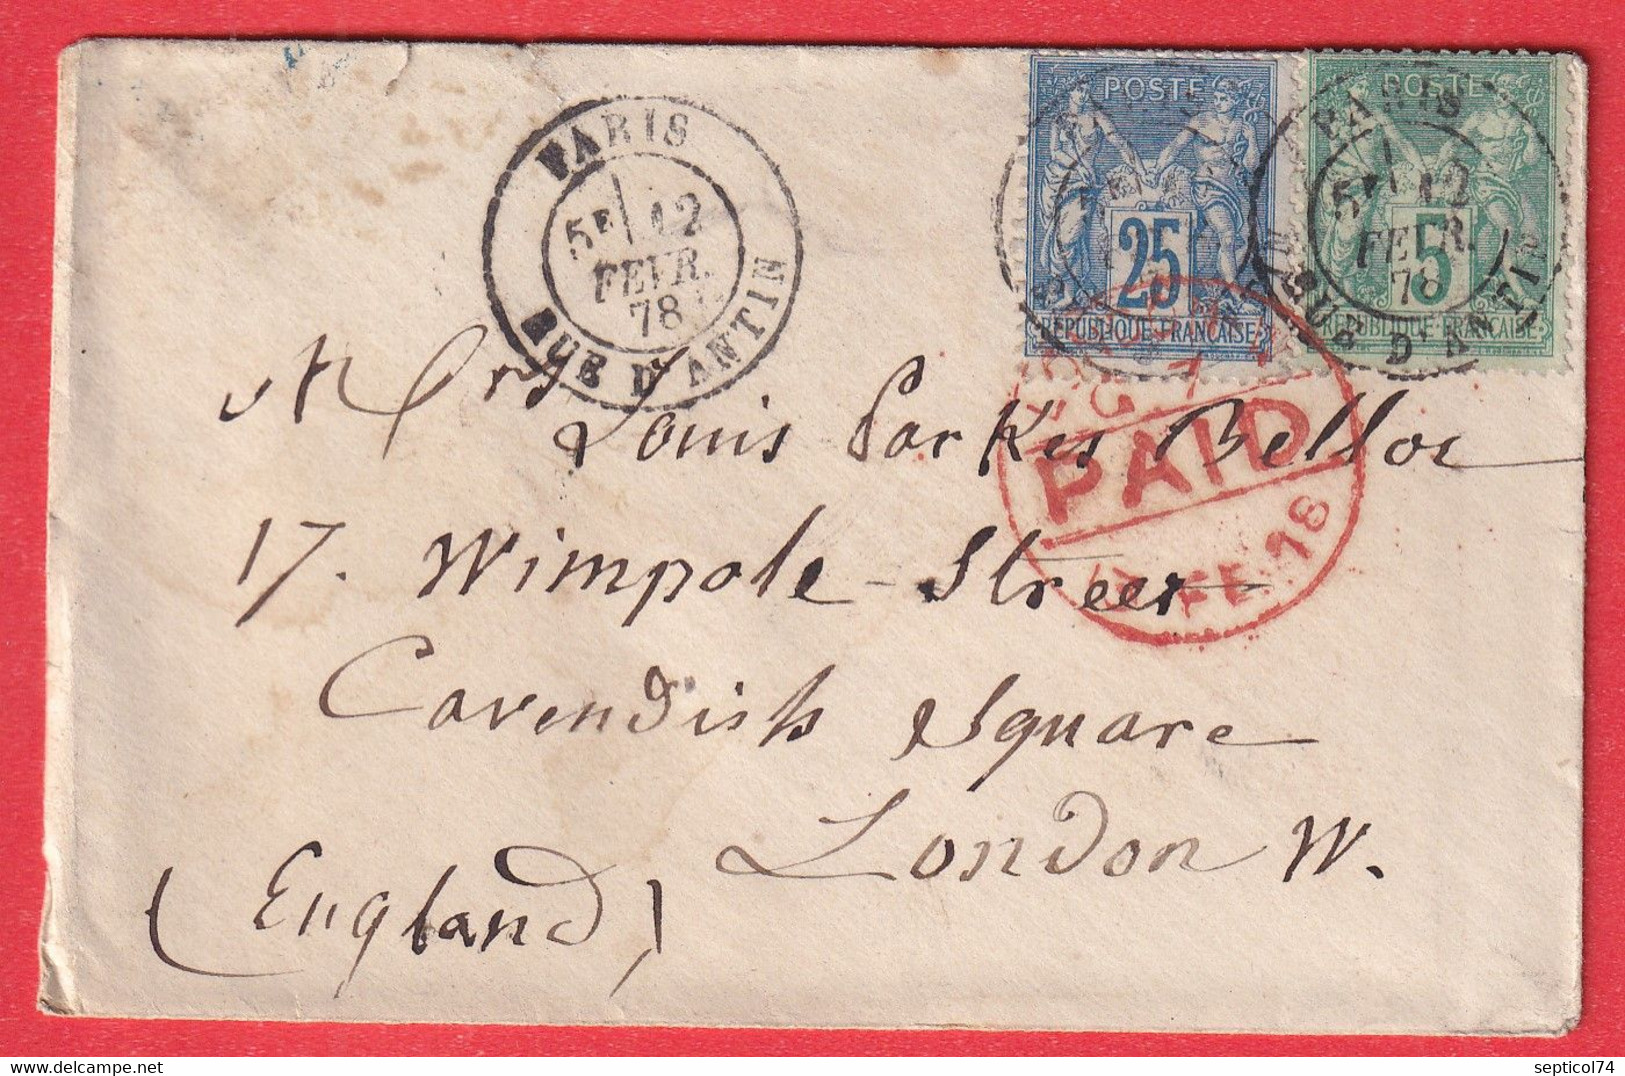 POSTE
25
REPUBLIQUE·FRANÇAISE
POSTE
5
REPUBLIQUE·FRANÇAISE
PARIS
5E 12
FEVR.
78
RUE D'ANTIN
PARIS
5E 12
FEVR.
78
RUE D'ANTIN
PAID
FE 78
Mrs Louis Parkes Belloc
17. Wimpole-Street
Cavendish Square
London W.
(England)
septicol74